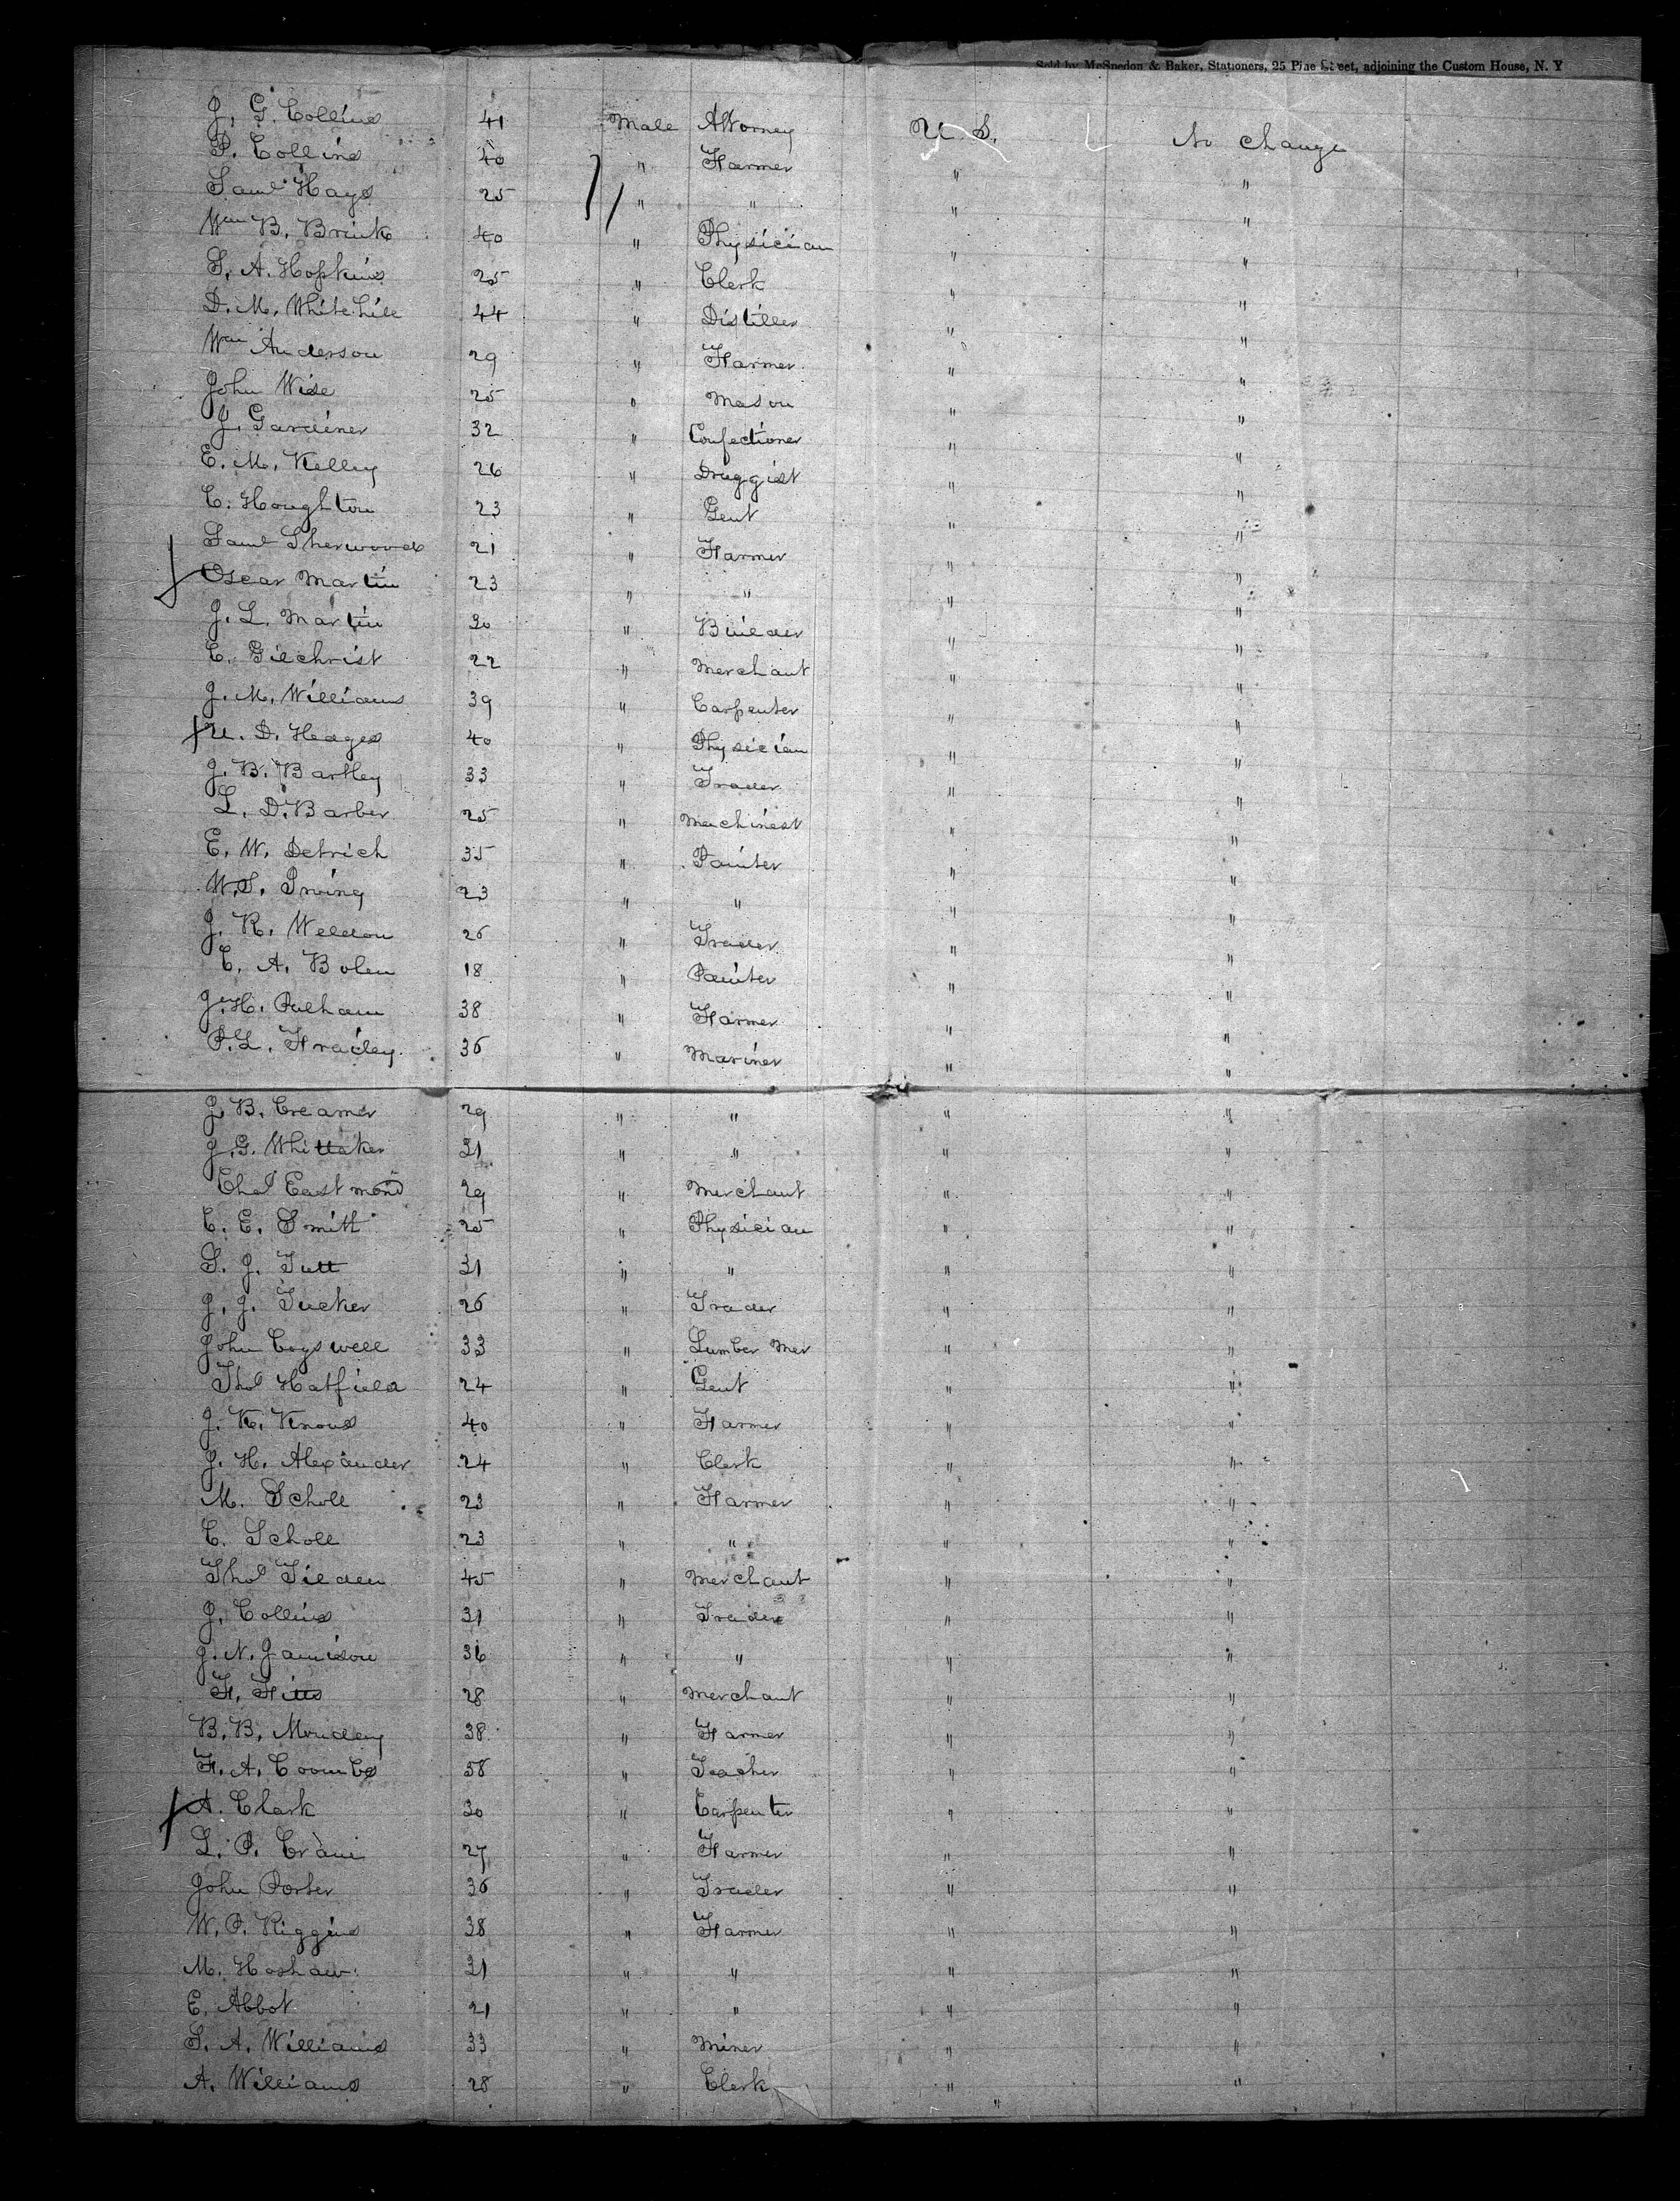 Sold by McSpedon & Baker, Stationers, 25 Pine Street, adjoining the Custom House, N. Y
J. G. Collins 41 Male Attorney U. S. No change
P. Collins 40 " Farmer " "
Saml Hays 25 " " " "
Wm B. Brink 40 " Physician " "
S. A. Hopkins 25 " Clerk " "
D. M. Whitehill 44 " Distiller " "
Wm Anderson 29 " Farmer " "
John Wise 25 " Mason " "
J. Gardiner 32 " Confectioner " "
E. M. Kelley 26 " Druggist " "
C. Houghton 23 " Gent " "
Saml Sherwood 21 " Farmer " "
Oscar Martin 23 " " " "
J. L. Martin 30 " Builder " "
C. Gilchrist 22 " Merchant " "
J. M. Williams 39 " Carpenter " "
U. D. Hedges 40 " Physician " "
J. B. Bartley 33 " Trader " "
L. D. Barber 25 " Machinest " "
E. W. Detrich 35 " Painter " "
W. S. Irving 23 " " " "
J. R. Weldon 26 " Trader " "
C. A. Bolen 18 " Painter " "
J. H. Pulham 38 " Farmer " "
P. L. Fraidey 36 " Mariner " "
J. B. Creamer 29 " " " "
J. G. Whittaker 31 " " " "
Chas Eastmond 29 " Merchant " "
C. E. Smith 25 " Physician " "
S. J. Tutt 31 " " " "
J. J. Tucker 26 " Trader " "
John Cogswell 33 " Lumber Mer " "
Thos Hatfield 24 " Gent " "
J. K. Knous 40 " Farmer " "
J. H. Alexander 24 " Clerk " "
M. Scholl 23 " Farmer " "
C. Scholl 23 " " " "
Thos Tilden 45 " Merchant " "
J. Collins 31 " Trader " "
J. N. Jamison 36 " " " "
F. Fitts 28 " Merchant " "
B. B. Mondey 38 " Farmer " "
F. A. Coombs 38 " Teacher " "
A. Clark 30 " Carpenter " "
L. P. Crain 27 " Farmer " "
John Porter 36 " Trader " "
W. P. Higgins 38 " Farmer " "
M. Hoshaw 31 " " " "
E. Abbot 21 " " " "
S. A. Williams 33 " Miner " "
A. Williams 28 " Clerk " "
"